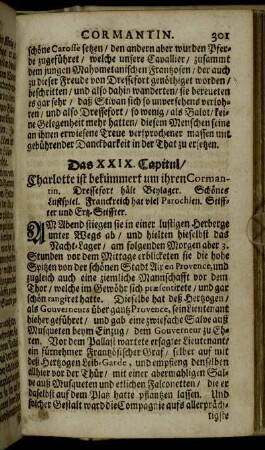 CORMANTIN. 301
schöne Carosse setzen / den andern aber wurden Pfer-
de zugeführet / welche unsere Cavallier / zusammt
dem jungen Mahometanischen Frantzosen / der auch
zu dieser Freude von Dressefort genöthiget worden /
beschritten / und also dahin wanderten / sie bereueten
es gar sehr / daß Stivan sich so unversehens verloh-
ren / und also Dressefort / so wenig / als Balot / kei-
ne Gelegenheit mehr hatten / diesem Menschen seine
an ihnen erwiesene Treue versprochener massen mit
gebührender Danckbarkeit in der That zu ersetzen.
Das XXIX. Capitul /
Charlotte ist bekümmert um ihren Corman-
tin. Dressefort hält Beylager. Schönes
Lustspiel. Franckreich hat viel Parochien, Stiff-
ter und Ertz-Stiffter.
AM Abend stiegen sie in einer lustigen Herberge
unter Wegs ab / und hielten hieselbst das
Nacht-Lager / am folgenden Morgen aber 3.
Stunden vor dem Mittage erblicketen sie die hohe
Spitzen von der schönen Stadt Aix en Provence, und
zugleich auch eine ziemliche Mannschafft vor dem
Thor / welche im Gewöhr sich præsentirete / und gar
schön rangiret hatte. Dieselbe hat deß Hertzogen /
als Gouverneurs über gantz Provence, sein Lieutenant
hieher geführet / und gab eine zweifache Salve auß
Musqueten beym Einzug / dem Gouverneur zu Eh-
ren. Vor dem Pallast wartete ersagter Lieutenant /
ein fürnehmer Frantzösischer Graf / selber auf mit
deß Hertzogen Leib-Garde, und empfieng denselben
allhier vor der Thür / mit einer abermahligen Sal-
ve auß Musqueten und etlichen Falconetten / die er
daselbst auf dem Platz hatte pflantzen lassen. Und
solcher Gestalt ward die Compagnie aufs allerpräch-
tigste